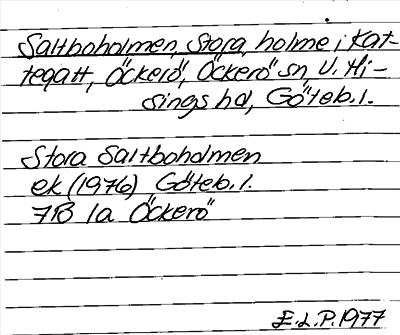 Saltboholmen, Stora, holme i Kat-
tegatt, Öckerö, Öckerö sn, V. Hi-
sings hd, Göteb. l.
Stora Saltboholmen
ek (1976) Göteb. l.
7B 1a Öckerö
E.L.P. 1977